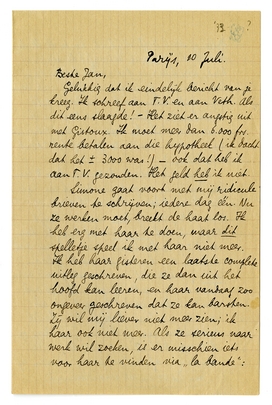 '39 ?
Parijs, 10 Juli.
Beste Jan,
Gelukkig dat ik eindelijk bericht van je
kreeg. Ik schreef aan T.V. en aan Veth. Als
dit eens slaagde! – Het ziet er angstig uit
met Gistoux. Ik moet meer dan 6.000 frs.
rente betalen aan die hypotheek (ik dacht
dat het ± 3000 was!) – ook dat heb ik
aan T.V. gezonden. Het geld heb ik niet.
Simone gaat voort met mij ridicule
brieven te schrijven; iedere dag één. Nu
ze werken moet, breekt de haat los. Ik
heb erg met haar te doen, maar dit
spelletje speel ik met haar niet meer.
Ik heb haar gisteren een laatste complete
uitleg geschreven, die ze dan uit het
hoofd kan leeren, en haar vandaag zoo
ongeveer geschreven dat ze kan barsten.
Zij wil mij liever niet meer zien; ik
haar ook niet meer. Als ze serieus naar
werk wil zoeken, is er misschien iets
voor haar te vinden via „la bande":